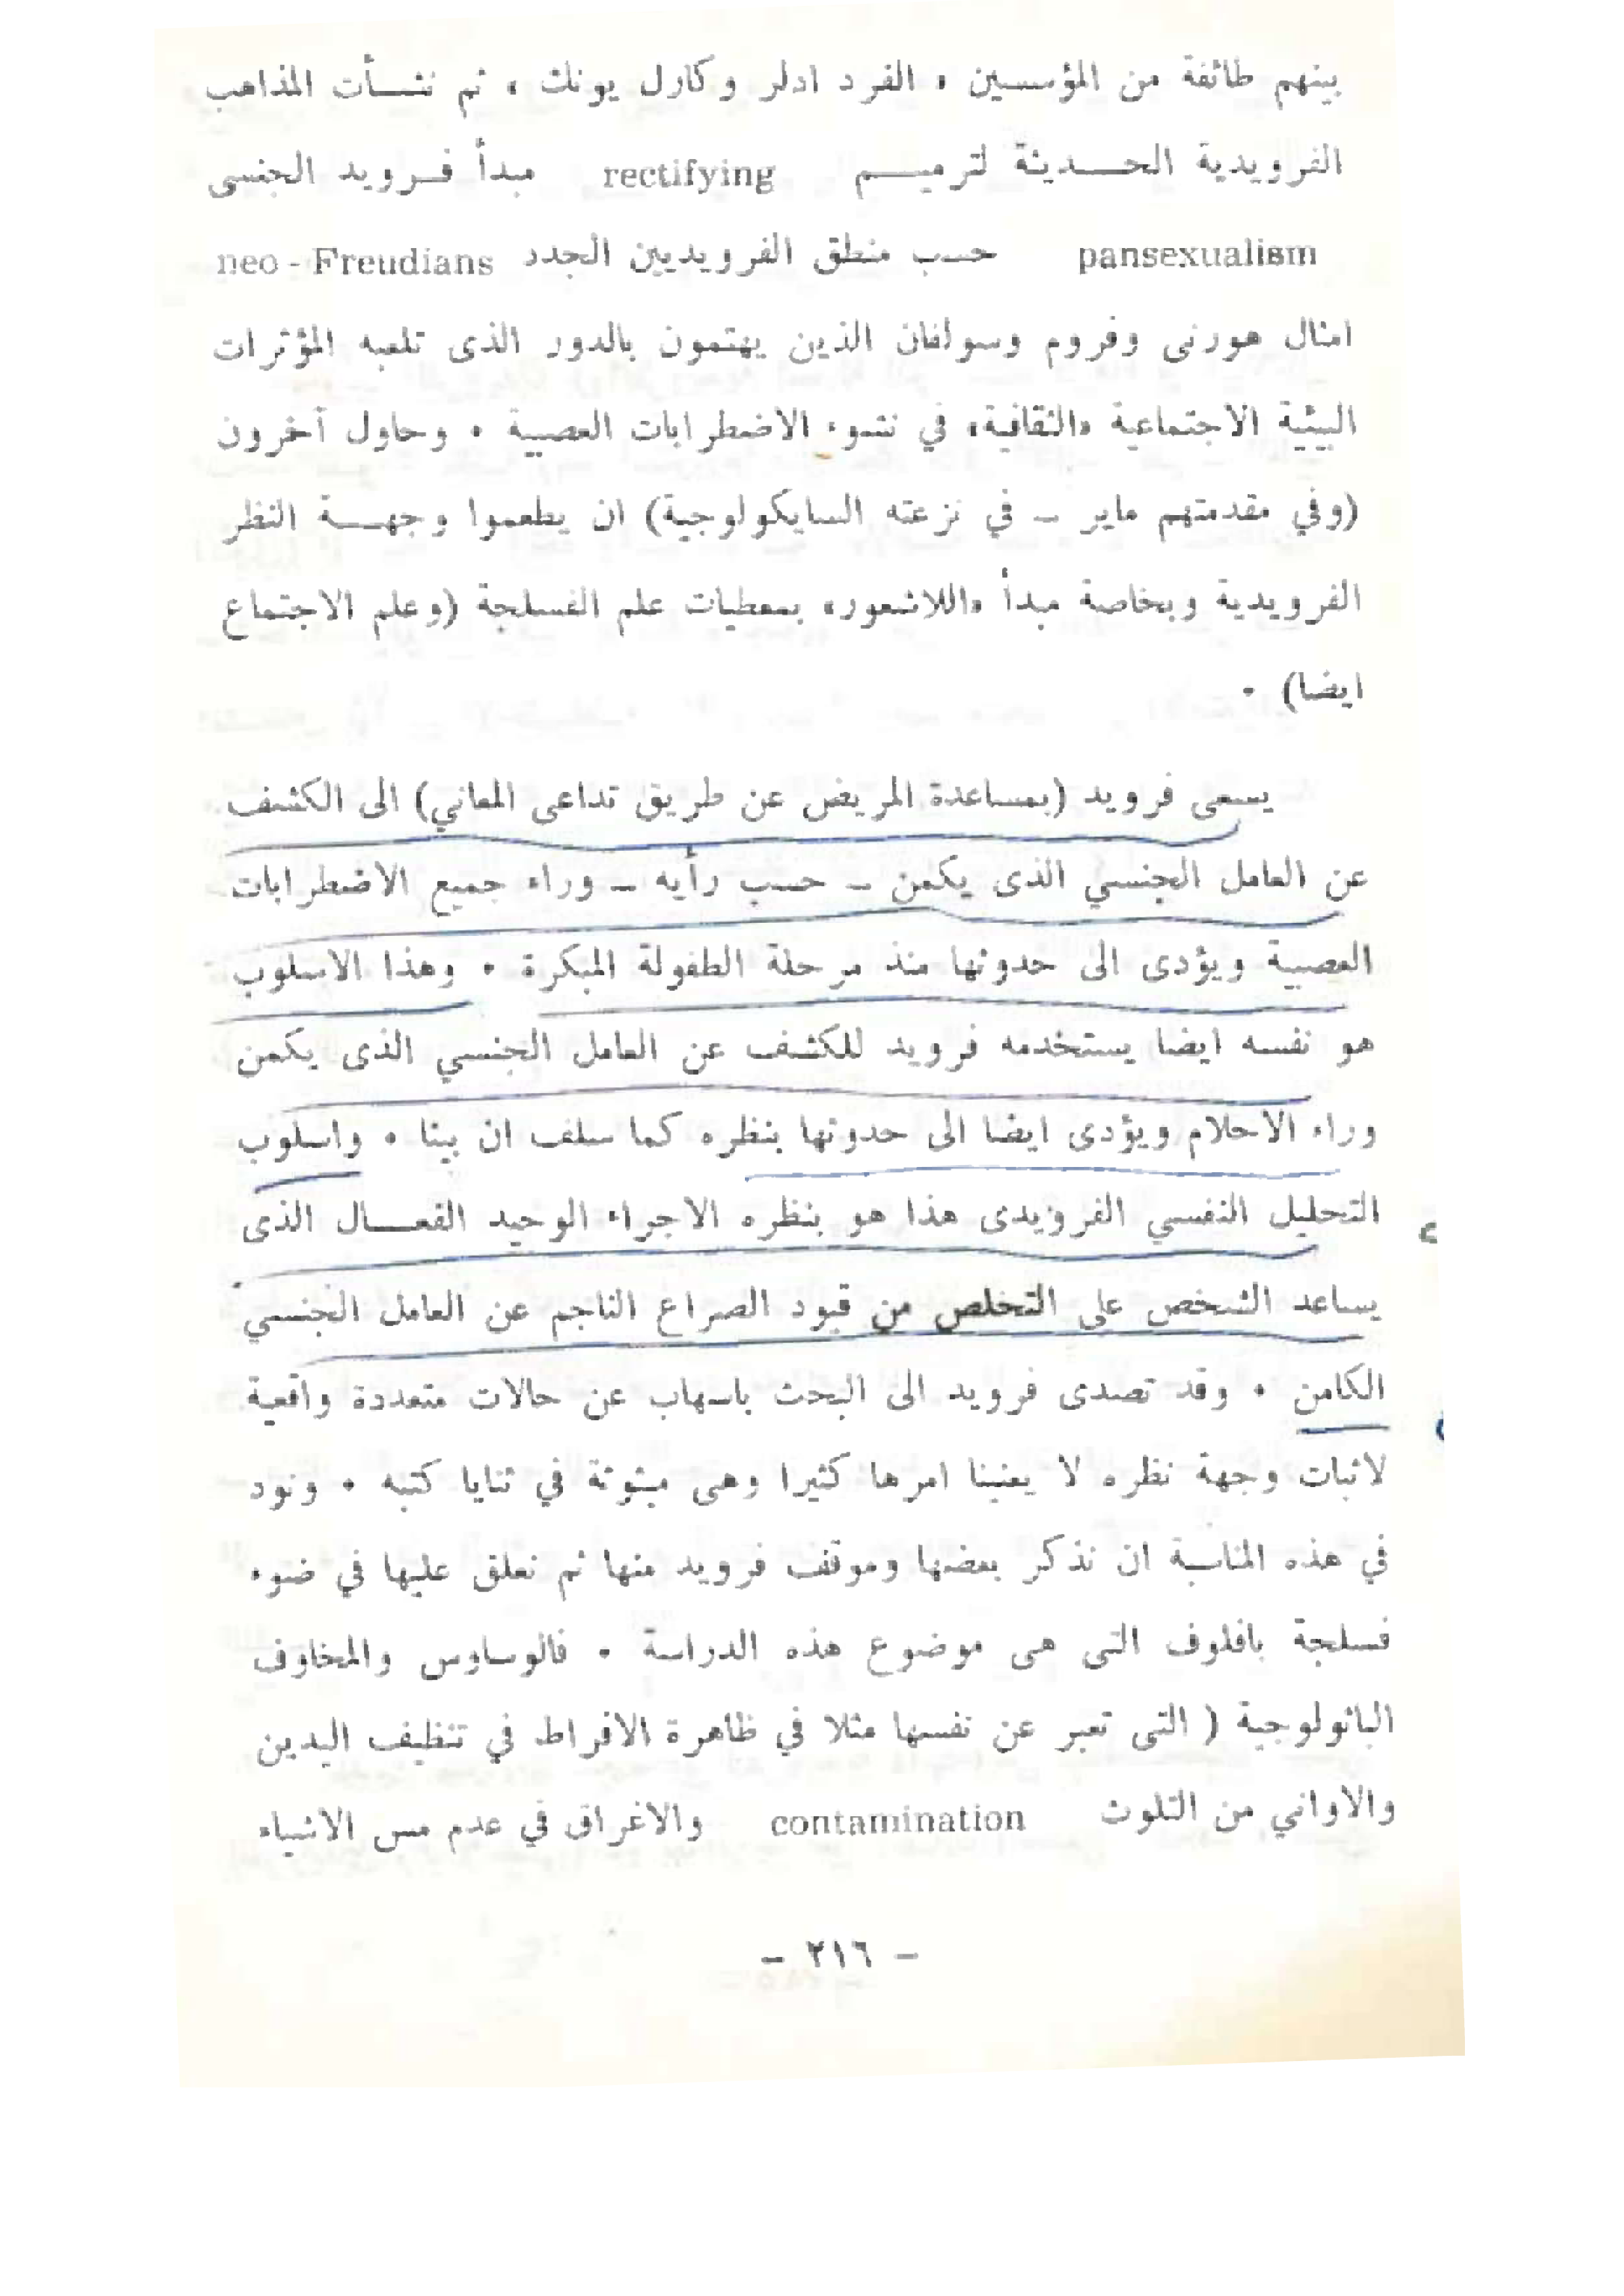 بينهم طائفة من المؤسسين ، الفرد ادلر وكارل يونك ، ثم نشأت المذاهب
الفرويدية الحديثة لترميم rectifying مبدأ فرويد الجنسى
pansexualism حسب منطق الفرويديين الجدد neo - Freudians
امثال هورنى وفروم وسولفان الذين يهتمون بالدور الذى تلعبه المؤثرات
البيئية الاجتماعية «الثقافية» في نشوء الاضطرابات العصبية . وحاول آخرون
(وفي مقدمتهم ماير ـ في نزعته السايكولوجية) ان يطعموا وجهة النظر
الفرويدية وبخاصة مبدأ «اللاشعور» بمعطيات علم الفسلجة (وعلم الاجتماع
ايضا) .
يسعى فرويد (بمساعدة المريض عن طريق تداعى المعاني) الى الكشف
عن العامل الجنسي الذى يكمن ـ حسب رأيه ـ وراء جميع الاضطرابات
العصبية ويؤدى الى حدوثها منذ مرحلة الطفولة المبكرة . وهذا الاسلوب
هو نفسه ايضا يستخدمه فرويد للكشف عن العامل الجنسي الذى يكمن
وراء الاحلام ويؤدى ايضا الى حدوثها بنظره كما سلف ان بينا . واسلوب
التحليل النفسي الفرويدى هذا هو بنظره الاجراء الوحيد الفعال الذى
يساعد الشخص على التخلص من قيود الصراع الناجم عن العامل الجنسي
الكامن . وقد تصدى فرويد الى البحث باسهاب عن حالات متعددة واقعية
لاثبات وجهة نظره لا يعنينا امرها كثيرا وهى مبثوثة في ثنايا كتبه . ونود
في هذه المناسبة ان نذكر بعضها وموقف فرويد منها ثم نعلق عليها في ضوء
فسلجة بافلوف التى هى موضوع هذه الدراسة . فالوساوس والمخاوف
الباثولوجية ( التى تعبر عن نفسها مثلا في ظاهرة الافراط في تنظيف اليدين
والاواني من التلوث contamination والاغراق في عدم مس الاشياء
- ٢١٦ -